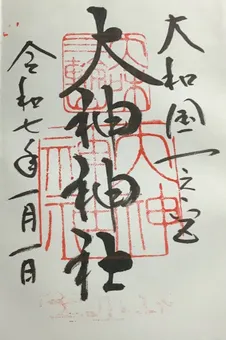 大和国一之宮
大神神社
令和七年一月一日